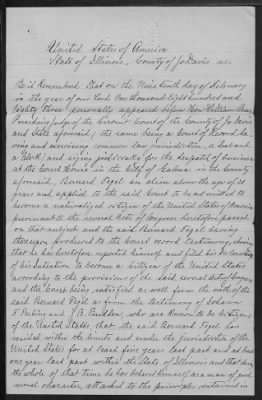 United States of America
State of Illinois, County of JoDavis ss.
Be it Remembered that on the Nineteenth day of February
in the year of our Lord One thousand Eight hundred and
Eighty three personally appeared before Hon William Brown
Presiding Judge of the Circuit Court of the County of Jo Davis
and State aforesaid, the same being a Court of Record, ha
ving and exercising common law jurisdiction, a Seal and
a Clerk, and sitting judicially for the despatch of business
at the Court House in the City of Galena in the County
aforesaid, Bernard Fogel an alien above the age of 21
years and applied to the said Court to be admitted to
become a naturalized citizen of the United States of America
pursuant to the several Acts of Congress heretofore passed
on that subject and the said Bernard Fogel having
thereupon produced to the Court record testimony showing
that he has heretofore reported himself and filed his Declaration
of his Intention to become a Citizen of the United States
according to the provisions of the said several Acts of Congress
and the Court being satisfied as well from the oath of the
said Bernard Fogel as from the testimony of Johann
and J B. who are known to be Citizens
of the United States, that the said Bernard Fogel has
resided within the limits and under the jurisdiction of the
United States for at least five years last past and at least
one year last past within the State of Illinois and that during
the whole of that time he has behaved himself as a man of good
moral character, attached to the principles contained in